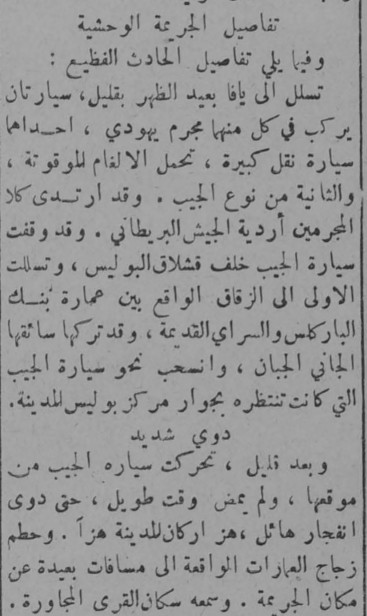 تفاصيل الجريمة الوحشية
وفيما يلي تفاصيل الحادث الفظيع :
تسلل الى يافا بعيد الظهر بقليل، سيارتان
يركب في كل منهما مجرم يهودي ، احداهما
سيارة نقل كبيرة ، تحمل الالغام الموقوتة ،
والثانية من نوع الجيب . وقد ارتدى كلا
المجرمين أردية الجيش البريطاني . وقد وقفت
سيارة الجيب خلف قشلاق البوليس ، وتسللت
الاولى الى الزقاق الواقع بين عمارة بنك
الباركلس والسراي القديمة ، وقد تركها سائقها
الجاني الجبان ، وانسحب نحو سيارة الجيب
التي كانت تنتظره بجوار مركز بوليس المدينة.
دوي شديد
وبعد قليل ، تحركت سياره الجيب من
موقعها ، ولم يمض وقت طويل ، حتى دوى
انفجار هائل ،هز اركان المدينة هزآ . وحطم
زجاج العمارات الواقعة الى مسافات بعيدة عن
مكان الجريمة . وسمعه سكان القرى المجاورة .